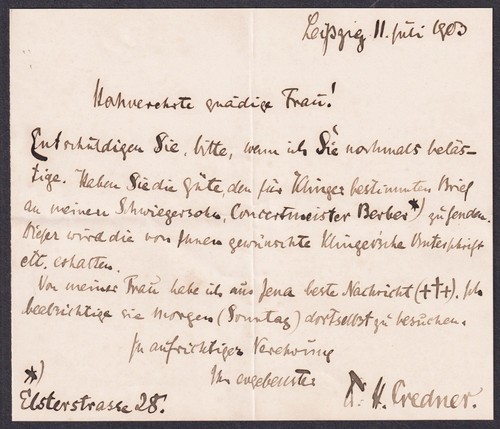 Leipzig 11. Juli 1903
Hochverehrte gnädige Frau!
Entschuldigen Sie, bitte, wenn ich Sie nochmals beläs-
tige. Haben Sie die Güte, den für Klinger bestimmten Brief
an meinen Schwiegersohn, Concertmeister Berber *) zu senden.
Dieser wird die von Ihnen gewünschte Klinger'sche Unterschrift
ett. erhalten.
Von meiner Frau habe ich aus Jena beste Nachricht (+++). Ich
beabsichtige sie morgen (Sonntag) dortselbst zu besuchen.
In aufrichtiger Verehrung
Ihr ergebenster
H. Credner.
*)
Elsterstrasse 28.